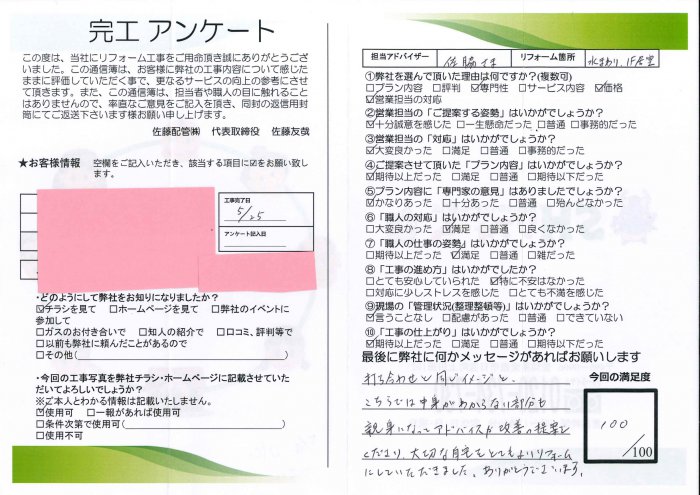 完工 アンケート
この度は、当社にリフォーム工事をご用命頂き誠にありがとうござ
いました。この通信簿は、お客様に弊社の工事内容について感じた
ままに評価していただく事で、更なるサービスの向上の参考にさせ
て頂きます。また、この通信簿は、担当者や職人の目に触れること
はありませんので、率直なご意見をご記入を頂き、同封の返信用封
筒にてご返送下さいます様お願い申し上げます。
佐藤配管㈱ 代表取締役 佐藤友哉
★お客様情報 空欄をご記入いただき、該当する項目に☑をお願い致し
ます。
工事完了日
5/25
アンケート記入日
・どのようにして弊社をお知りになりましたか?
☑チラシを見て □ホームページを見て □弊社のイベントに
参加して
□ガスのお付き合いで □知人の紹介で □口コミ、評判等で
□以前も弊社に頼んだことがあるので
□その他( )
・今回の工事写真を弊社チラシ・ホームページに記載させていた
だいてよろしいでしょうか?
※ご本人とわかる情報は記載いたしません。
☑使用可 □一報があれば使用可
□条件次第で使用可( )
□使用不可
担当アドバイザー 佐藤さま リフォーム箇所 水まわり、1F居室
①弊社を選んで頂いた理由は何ですか?(複数可)
□プラン内容 □評判 ☑専門性 □サービス内容 ☑価格
☑営業担当の対応
②営業担当の「ご提案する姿勢」はいかがでしょうか?
☑十分誠意を感じた □一生懸命だった □普通 □事務的だった
③営業担当の「対応」はいかがでしょうか?
☑大変良かった □満足 □普通 □事務的だった
④ご提案させて頂いた「プラン内容」はいかがでしょうか?
☑期待以上だった □満足 □普通 □期待以下だった
⑤プラン内容に「専門家の意見」はありましたでしょうか?
☑かなりあった □十分あった □普通 □殆んどなかった
⑥「職人の対応」はいかがでしょうか?
□大変良かった ☑満足 □普通 □良くなかった
⑦「職人の仕事の姿勢」はいかがでしょうか?
□期待以上だった ☑満足 □普通 □雑だった
⑧「工事の進め方」はいかがでしたでしょうか?
□とても安心していられた ☑特に不安はなかった
□対応に少しストレスを感じた □とても不満を感じた
⑨現場の「管理状況(整理整頓等)」はいかがでしょうか?
☑言うことなし □配慮があった □普通 □できていない
⑩「工事の仕上がり」はいかがでしょうか?
☑期待以上だった □満足 □普通 □期待以下だった
最後に弊社に何かメッセージがあればお願いします
打ち合わせと同じイメージで、
こちらでは中身がわからない部分も
親身になってアドバイスや改善の提案を
くださり、大切な自宅をとてもよいリフォーム
にしていただきました。ありがとうございます。
今回の満足度
100
/100